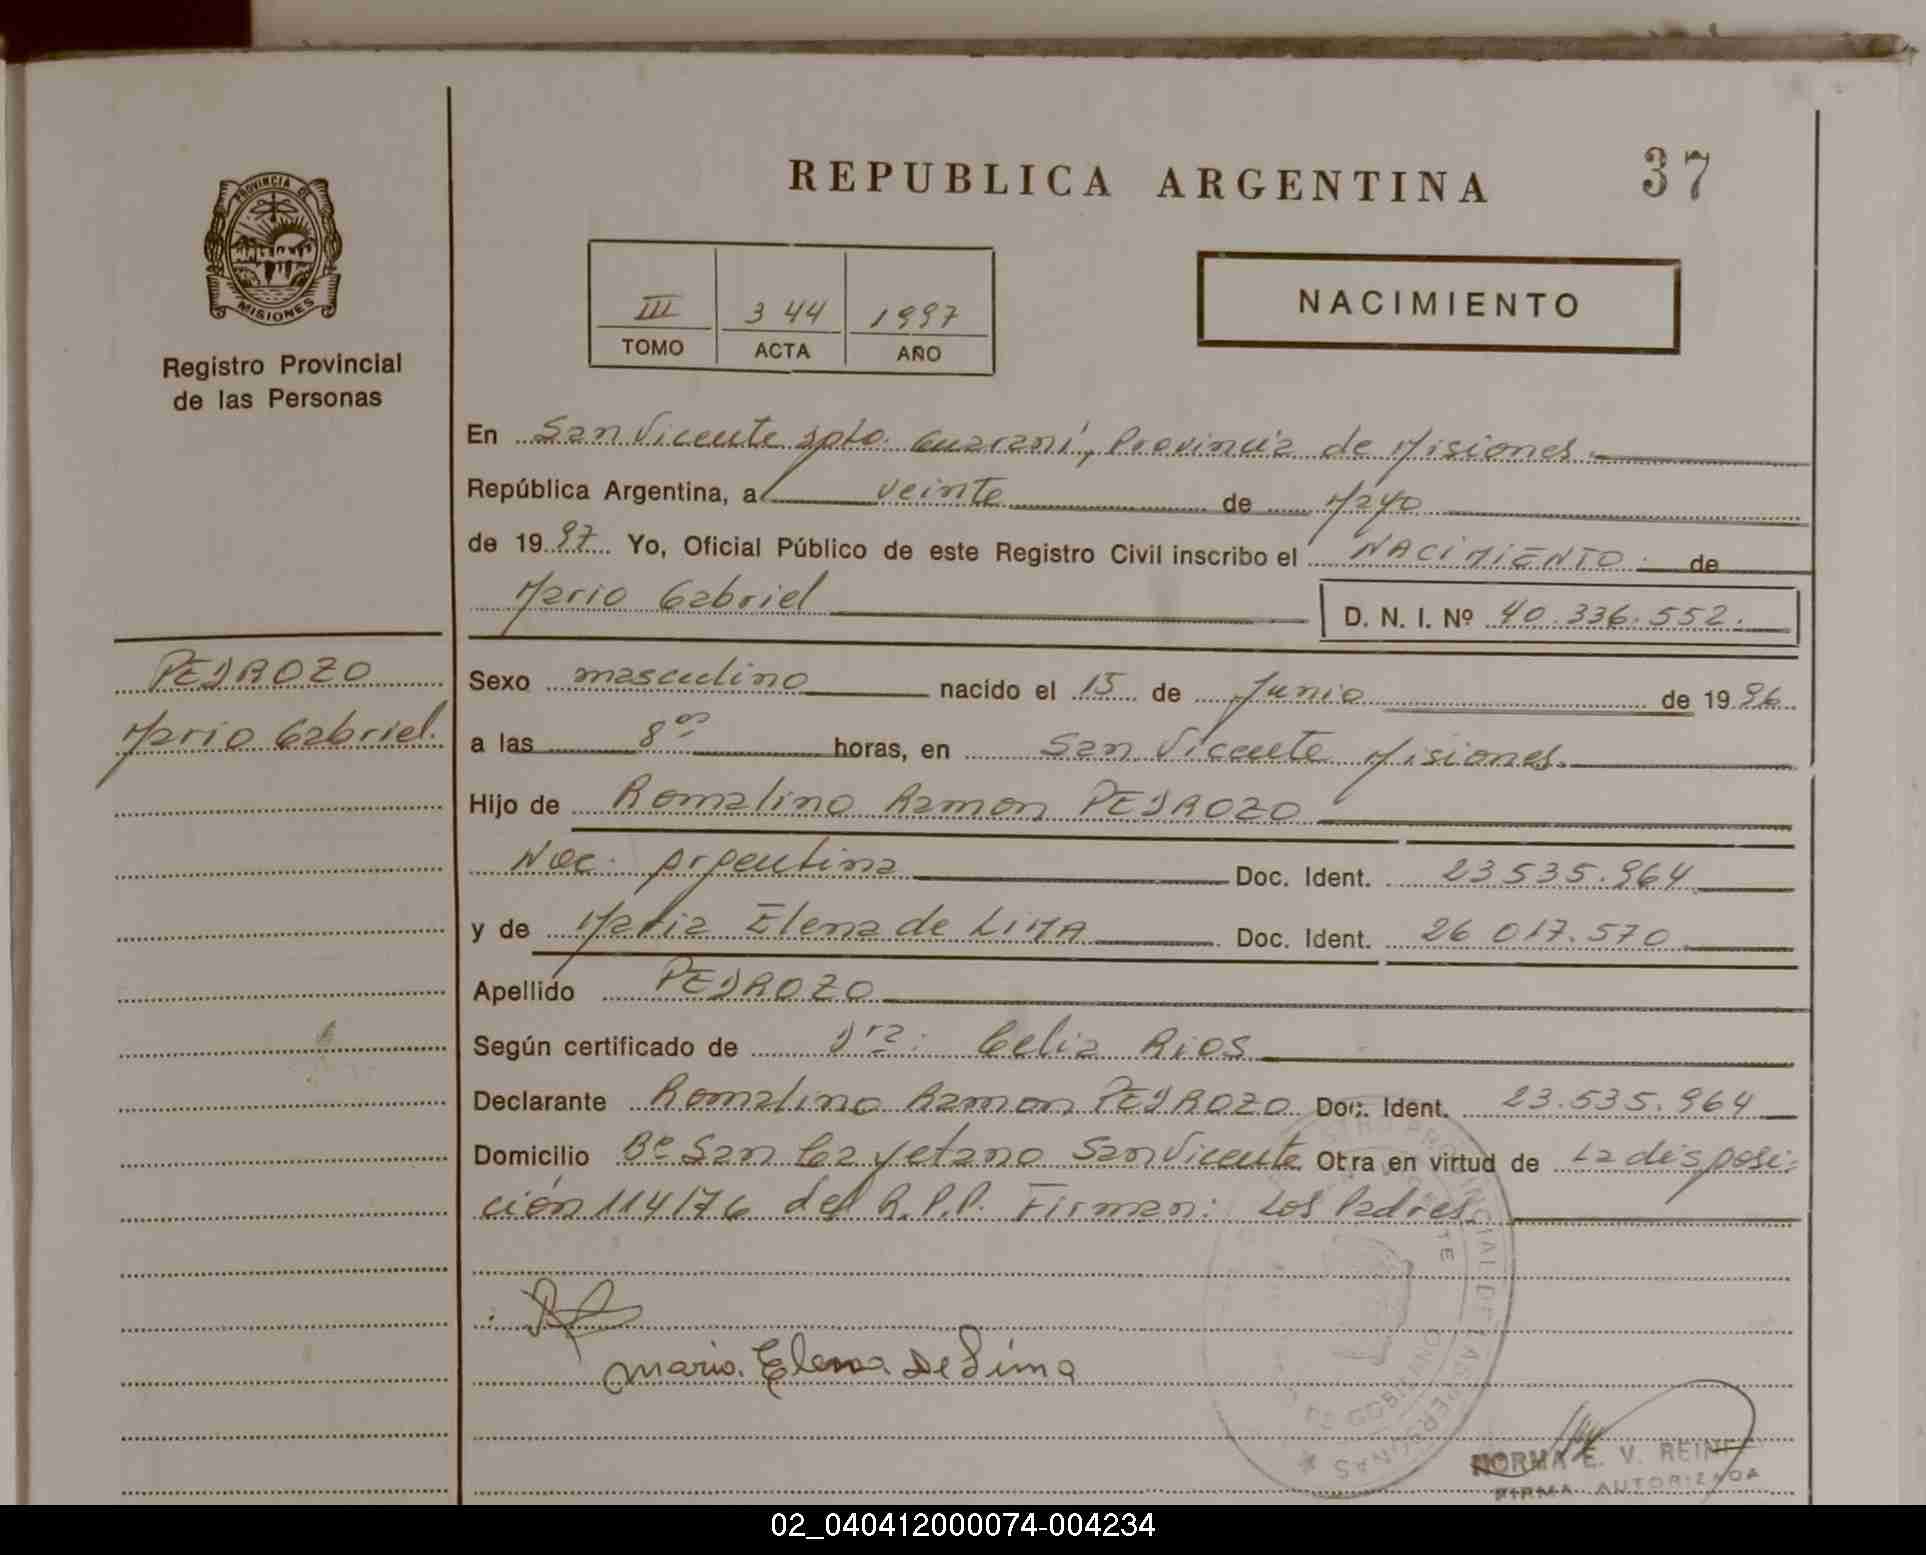 REPUBLICA ARGENTINA
37
PROVINCIA DE
MISIONES
Registro Provincial
de las Personas
III
3 44
1997
TOMO
ACTA
AÑO
NACIMIENTO
En San Vicente Dpto. Guaraní, Provincia de Misiones.
República Argentina, a veinte de Mayo
de 1997. Yo, Oficial Público de este Registro Civil inscribo el NACIMIENTO de
Mario Gabriel
D. N. I. Nº 40.336.552.
PEDROZO
Mario Gabriel.
Sexo masculino nacido el 15 de Junio de 1996
a las 8 horas, en San Vicente Misiones.
Hijo de Romalino Ramon PEDROZO
Nac. Argentina Doc. Ident. 23 535.964
y de Maria Elena de LIMA Doc. Ident. 26 017.570
Apellido PEDROZO
Según certificado de Dra: Celia Rios
Declarante Romalino Ramon PEDROZO Doc. Ident. 23.535.964
Domicilio Bº San Cayetano San Vicente Otra en virtud de La disposi-
ción 114/76 del R.P.P. Firman: Los Padres
Maria Elena De Lima
REGISTRO PROVINCIAL DE LAS PERSONAS
DE GOBIERNO
NORMA E. V. REINE
FIRMA AUTORIZADA
02_040412000074-004234